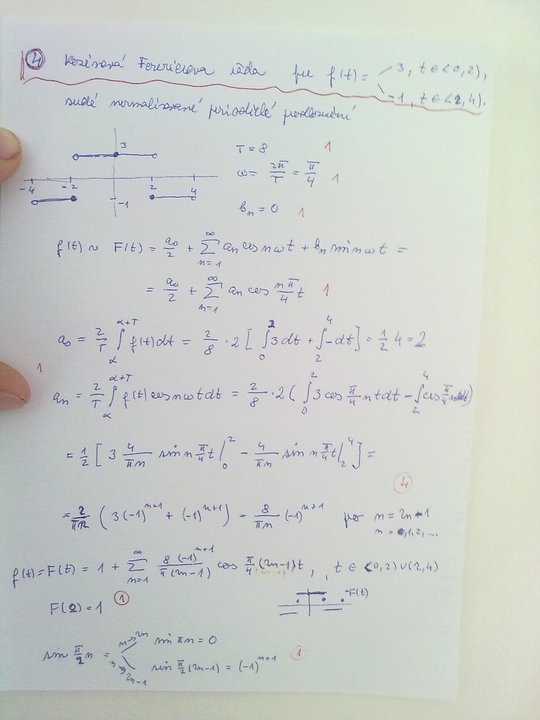 ④ Kosinová Fourierova řada pro f(t) = 3, t ∈ <0,2),
-1, t ∈ <2,4).
sudé normalizované periodické prodloužení
3
-4 -2 2 4
-1
T = 8 1
ω = 2π/T = π/4 1
bn = 0 1
f(t) ~ F(t) = a0/2 + ∑_{n=1}^{∞} an cos nωt + bn sin nωt =
= a0/2 + ∑_{n=1}^{∞} an cos nπ/4 t 1
a0 = 2/T ∫_α^{α+T} f(t)dt = 2/8 · 2 [ ∫_0^2 3dt + ∫_2^4 -dt ] = 1/2 4 = 2
1
an = 2/T ∫_α^{α+T} f(t) cos nωt dt = 2/8 · 2 ( ∫_0^2 3 cos π/4 nt dt - ∫_2^4 cos π/4 nt dt )
= 1/2 [ 3 4/πn sin n π/4 t |_0^2 - 4/πn sin n π/4 t |_2^4 ] =
4
= 2/πn ( 3(-1)^{n+1} + (-1)^{n+1} ) = 8/πn (-1)^{n+1} pro n = 2n-1
n = 0,1,2,...
f(t) = F(t) = 1 + ∑_{n=1}^{∞} 8(-1)^{n+1}/π(2n-1) cos π/4 (2n-1)t , t ∈ <0,2) ∪ (2,4)
F(2) = 1 1 F(t)
sin π/2 n = n→2n sin πn = 0
n→2n-1 sin π/2 (2n-1) = (-1)^{n+1} 1